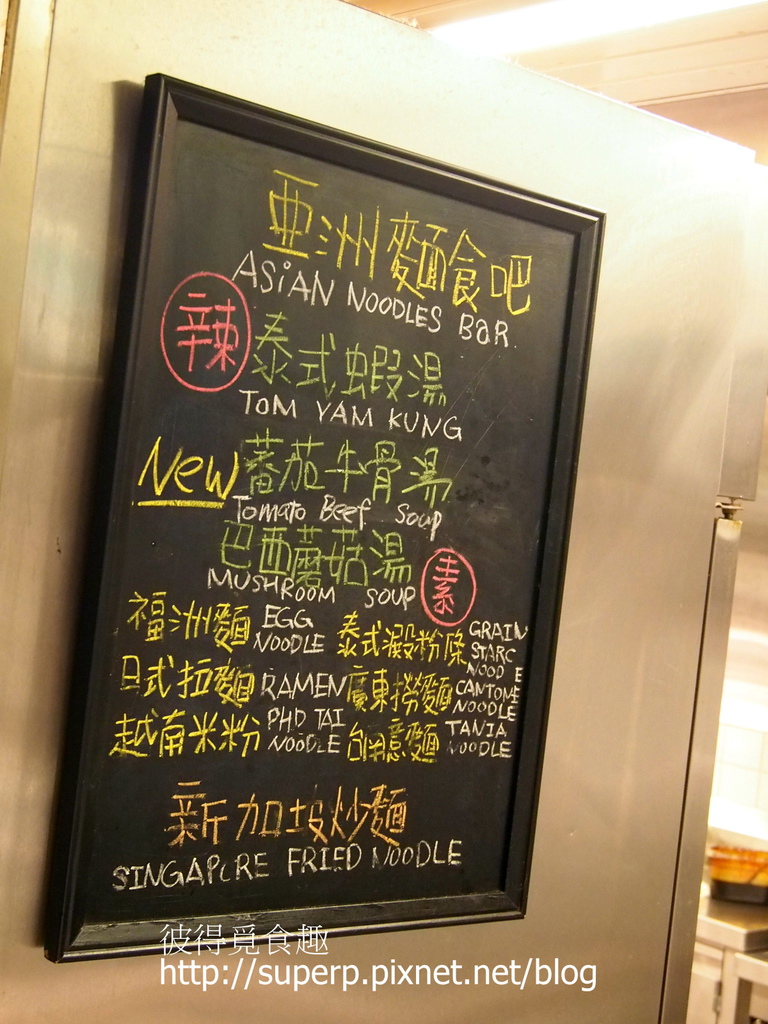 亞洲麵食吧
ASiAN NOODLES BaR.
辣 泰式蝦湯
ToM YAM KUNG
New 蕃茄牛骨湯
Tomato Beef Soup
巴西蘑菇湯 素
MUSHROOM SOUP
福州麵 EGG NOODLE
泰式澱粉條 GRAIN STARC NOOD E
日式拉麵 RAMEN
廣東撈麵 CANTONE NOODLE
越南米粉 PHD TAI NOODLE
台南意麵 TANIA NOODLE
新加坡炒麵
SINGAPORE FRIED NOODLE
彼得覓食趣
http://superp.pixnet.net/blog